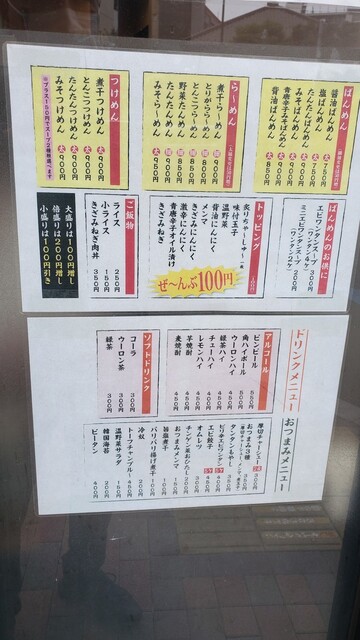 ばんめん
醤油ばんめん 大 750円
塩ばんめん 大 750円
みそばんめん 大 800円
青唐辛子みそばんめん 大 900円
醤油ばんめん 大
ら〜めん
煮干ら〜めん 900円
とりからら〜めん 900円
とんこつら〜めん 850円
野菜たんめん 850円
たんたんめん 900円
みそら〜めん 950円
つけめん
煮干つけめん 大 900円
とんこつつけめん 大 900円
たんたんつけめん 大 900円
みそつけめん 大 900円
※プラス150円でスープ2種類選べます
ばんめんのお供に
エビワンタンスープ 300円
(ワンタン4ケ)
ミニエビワンタンスープ 200円
(ワンタン2ケ)
トッピング
炙りちゃーしゅー
味付玉子
温野菜
醤油にんにく
メンマ
きざみにんにく
激辛にんにく
青唐辛子オイル漬け
きざみねぎ
ぜ〜んぶ100円
ご飯物
ライス 250円
小ライス 150円
きざみねぎ肉丼 350円
大盛りは100円増し
倍盛りは200円増し
小盛りは100円引き
ドリンクメニュー
アルコール
ビンビール 550円
角ハイボール 500円
ウーロンハイ 450円
緑茶ハイ 400円
チューハイ 400円
レモンハイ 450円
芋焼酎 450円
麦焼酎 450円
ソフトドリンク
コーラ 300円
ウーロン茶 300円
緑茶 300円
おつまみメニュー
厚切チャーシュー 300円
おつまみ3種 350円
タンタンもやし 250円
ピリ辛エビワンタン 400円
エビ餃子 400円
オムレツ 300円
チンゲン菜おひたし 200円
おつまみメンマ 150円
旨塩煮干 100円
パリパリ揚げ煮干 100円
冷奴 200円
トーフチャンプルー 450円
温野菜サラダ 150円
韓国海苔 200円
ピータン 400円